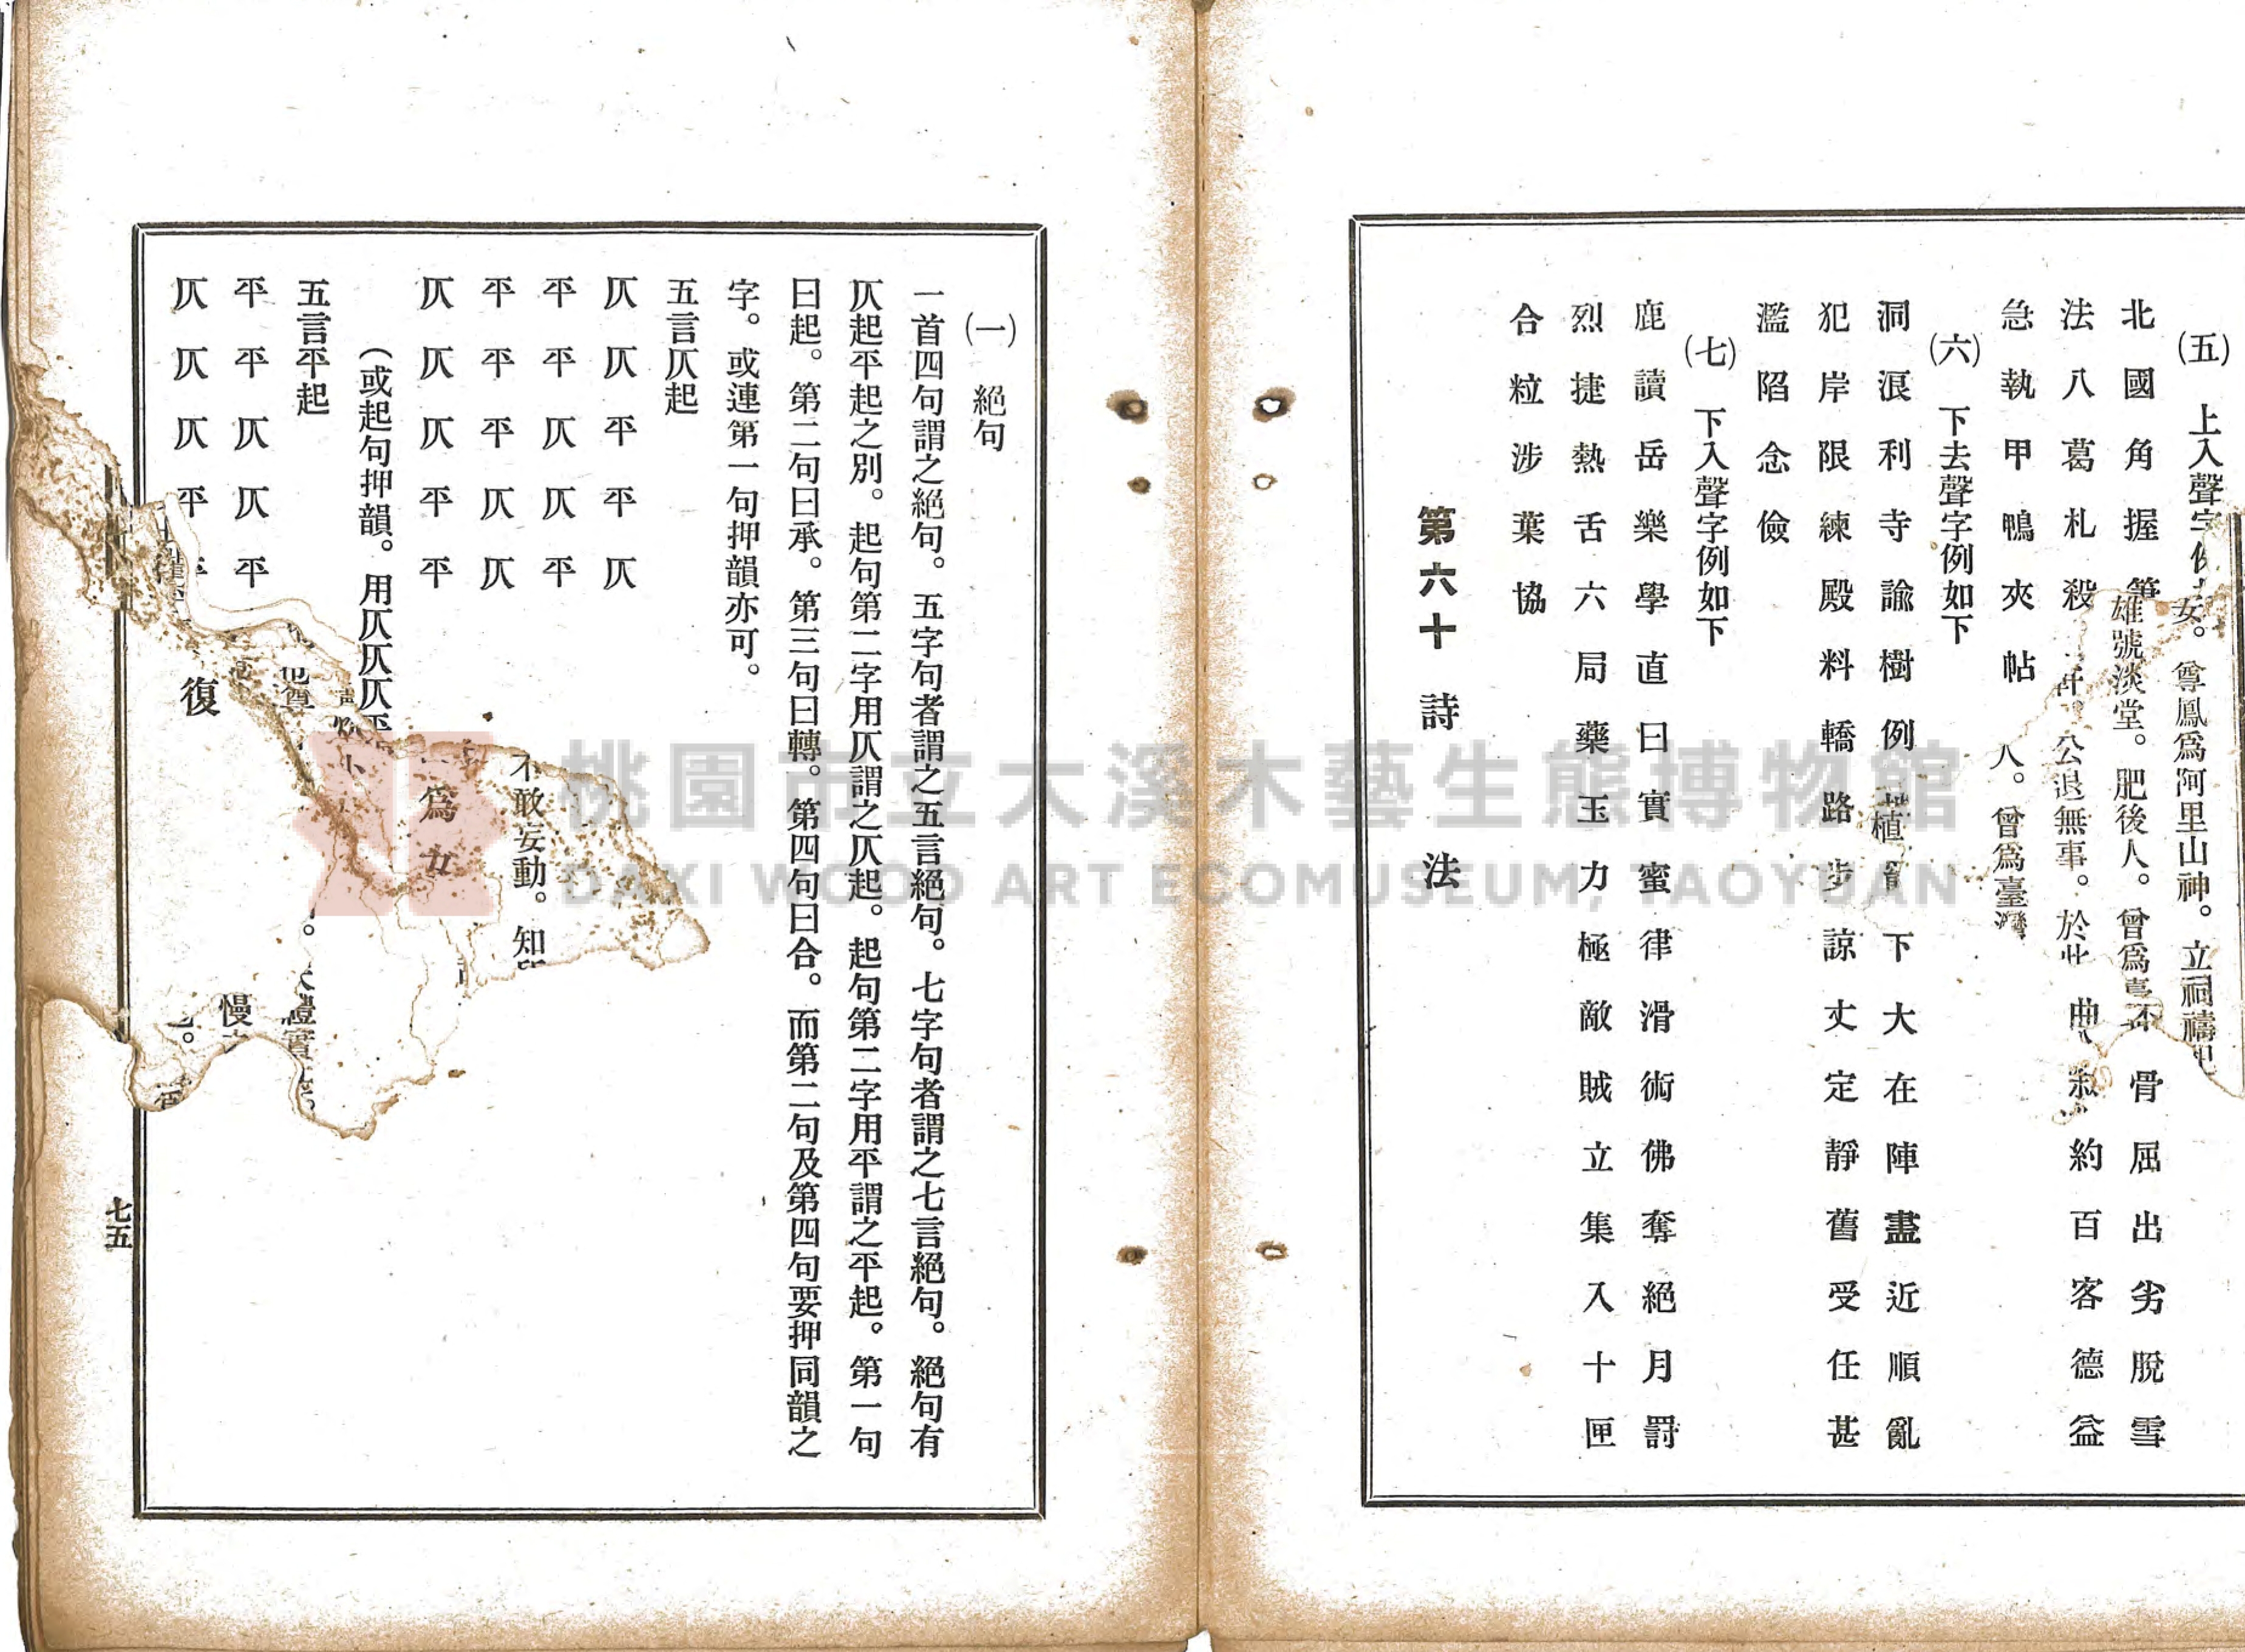 (五) 上入聲字
北國角握筆
骨屈出劣脫雪
法八葛札殺
曲
約百客德益
急執甲鴨夾帖
女。尊鳳為阿里山神。立祠禱
雄號淡堂。肥後人。曾為臺
公退無事。於此
人。曾為臺灣
(六) 下去聲字例如下
洞浪利寺諭樹例
植
下大在陣盡近順亂
犯岸限練殿料轎路步諒丈定靜舊受任甚
濫陷念儉
(七) 下入聲字例如下
鹿讀岳樂學直曰實蜜律滑術佛奪絕月罸
烈捷熱舌六局藥玉力極敵賊立集入十匣
合粒涉葉協
第六十 詩 法
(一) 絕句
一首四句謂之絕句。五字句者謂之五言絕句。七字句者謂之七言絕句。絕句有
仄起平起之別。起句第二字用仄謂之仄起。起句第二字用平謂之平起。第一句
曰起。第二句曰承。第三句曰轉。第四句曰合。而第二句及第四句要押同韻之
字。或連第一句押韻亦可。
五言仄起
仄仄平平仄
平平仄仄平
平平平仄仄
仄仄仄平平
(或起句押韻。用仄仄仄平
五言平起
平平仄仄平
仄仄仄平
不敢妄動。知
為
禮實
慢
復
七五
桃園市立大溪木藝生態博物館
DAXI WOOD ART ECOMUSEUM, TAOYUAN